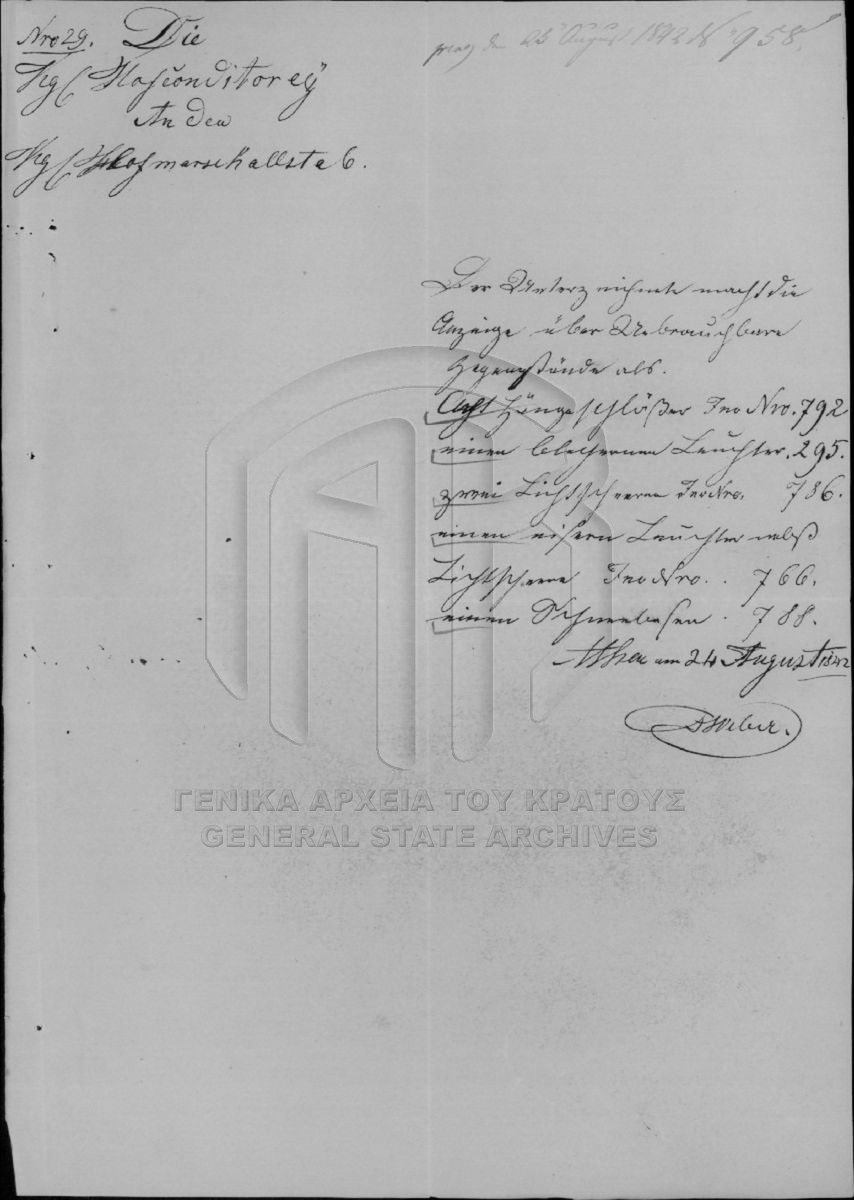 Nro 29. Die
Kgl Hofconditorey
An den
Kgl Hofmarschallstab.
praes den 25 August 1842 No 958.
Der Unterzeichnete macht die
Anzeige über Unbrauchbare
Gegenstände als.
Acht Hängeschlößer Inv Nro. 792
einen blechernen Leuchter. 295.
zwei Lichtscheeren Inv Nro. 786.
einen eisern Leuchter nebst
Lichtscheere Inv Nro. . 766.
einen Schneebesen . 788.
Athen am 24 August 1842
Weber.
ΓΕΝΙΚΑ ΑΡΧΕΙΑ ΤΟΥ ΚΡΑΤΟΥΣ
GENERAL STATE ARCHIVES